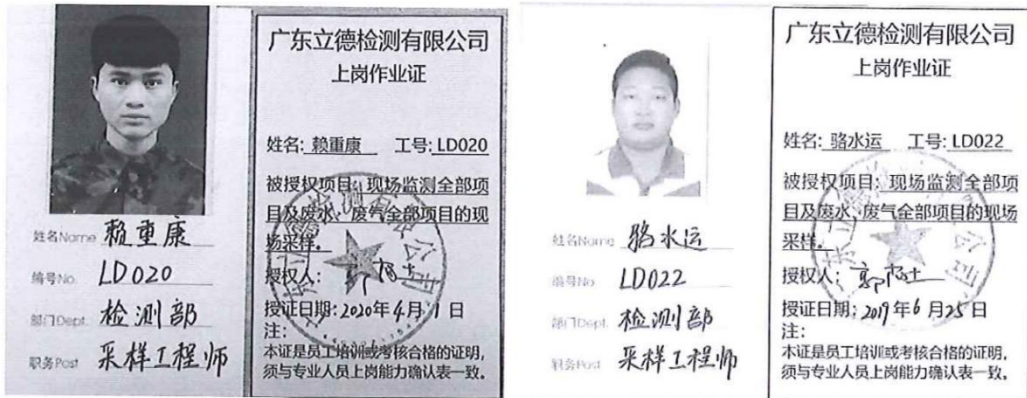 姓名Name 赖重康
编号No. LD020
部门Dept. 检测部
职务Post 采样工程师
广东立德检测有限公司
上岗作业证
姓名: 赖重康 工号: LD020
被授权项目: 现场监测全部项
目及废水、废气全部项目的现
场采样。
授权人:
授证日期: 2020年4月1日
注:
本证是员工培训或考核合格的证明,
须与专业人员上岗能力确认表一致。
姓名Name 骆水运
编号No LD022
部门Dept. 检测部
职务Post 采样工程师
广东立德检测有限公司
上岗作业证
姓名: 骆水运 工号: LD022
被授权项目: 现场监测全部项
目及废水、废气全部项目的现场
采样。
授权人:
授证日期: 2019年6月25日
注:
本证是员工培训或考核合格的证明,
须与专业人员上岗能力确认表一致。